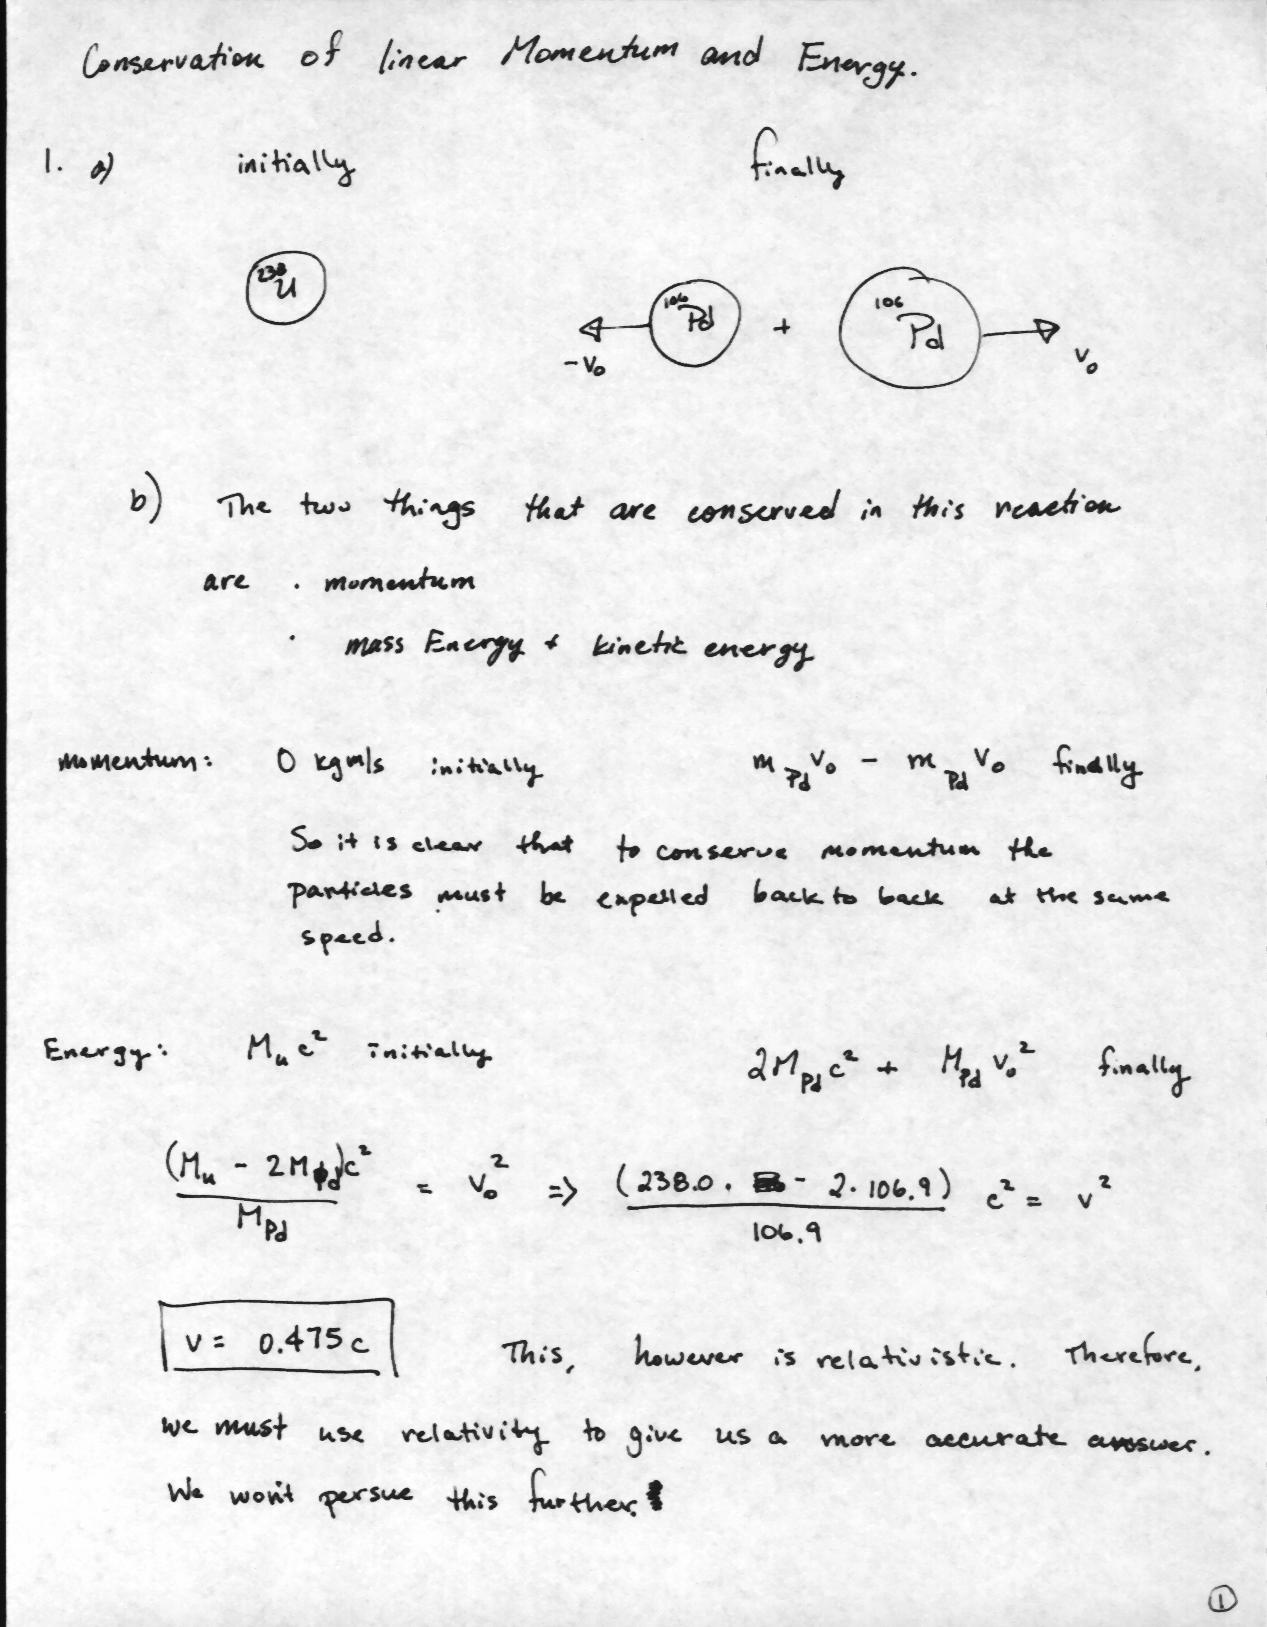 Conservation of linear Momentum and Energy.
1. a) initially finally
²³⁸U
¹⁰⁶Pd + ¹⁰⁶Pd
-v₀ v₀
b) The two things that are conserved in this reaction
are · momentum
· mass Energy + kinetic energy
momentum: 0 kgm/s initially m_Pd v₀ - m_Pd v₀ finally
So it is clear that to conserve momentum the
particles must be expelled back to back at the same
speed.
Energy: M_u c² initially 2M_Pd c² + M_Pd v₀² finally
(M_u - 2M_Pd)c² / M_Pd = v₀² => (238.0 . - 2.106.9) / 106.9 c² = v²
v = 0.475c This, however is relativistic. Therefore,
we must use relativity to give us a more accurate answer.
We won't persue this further.
1